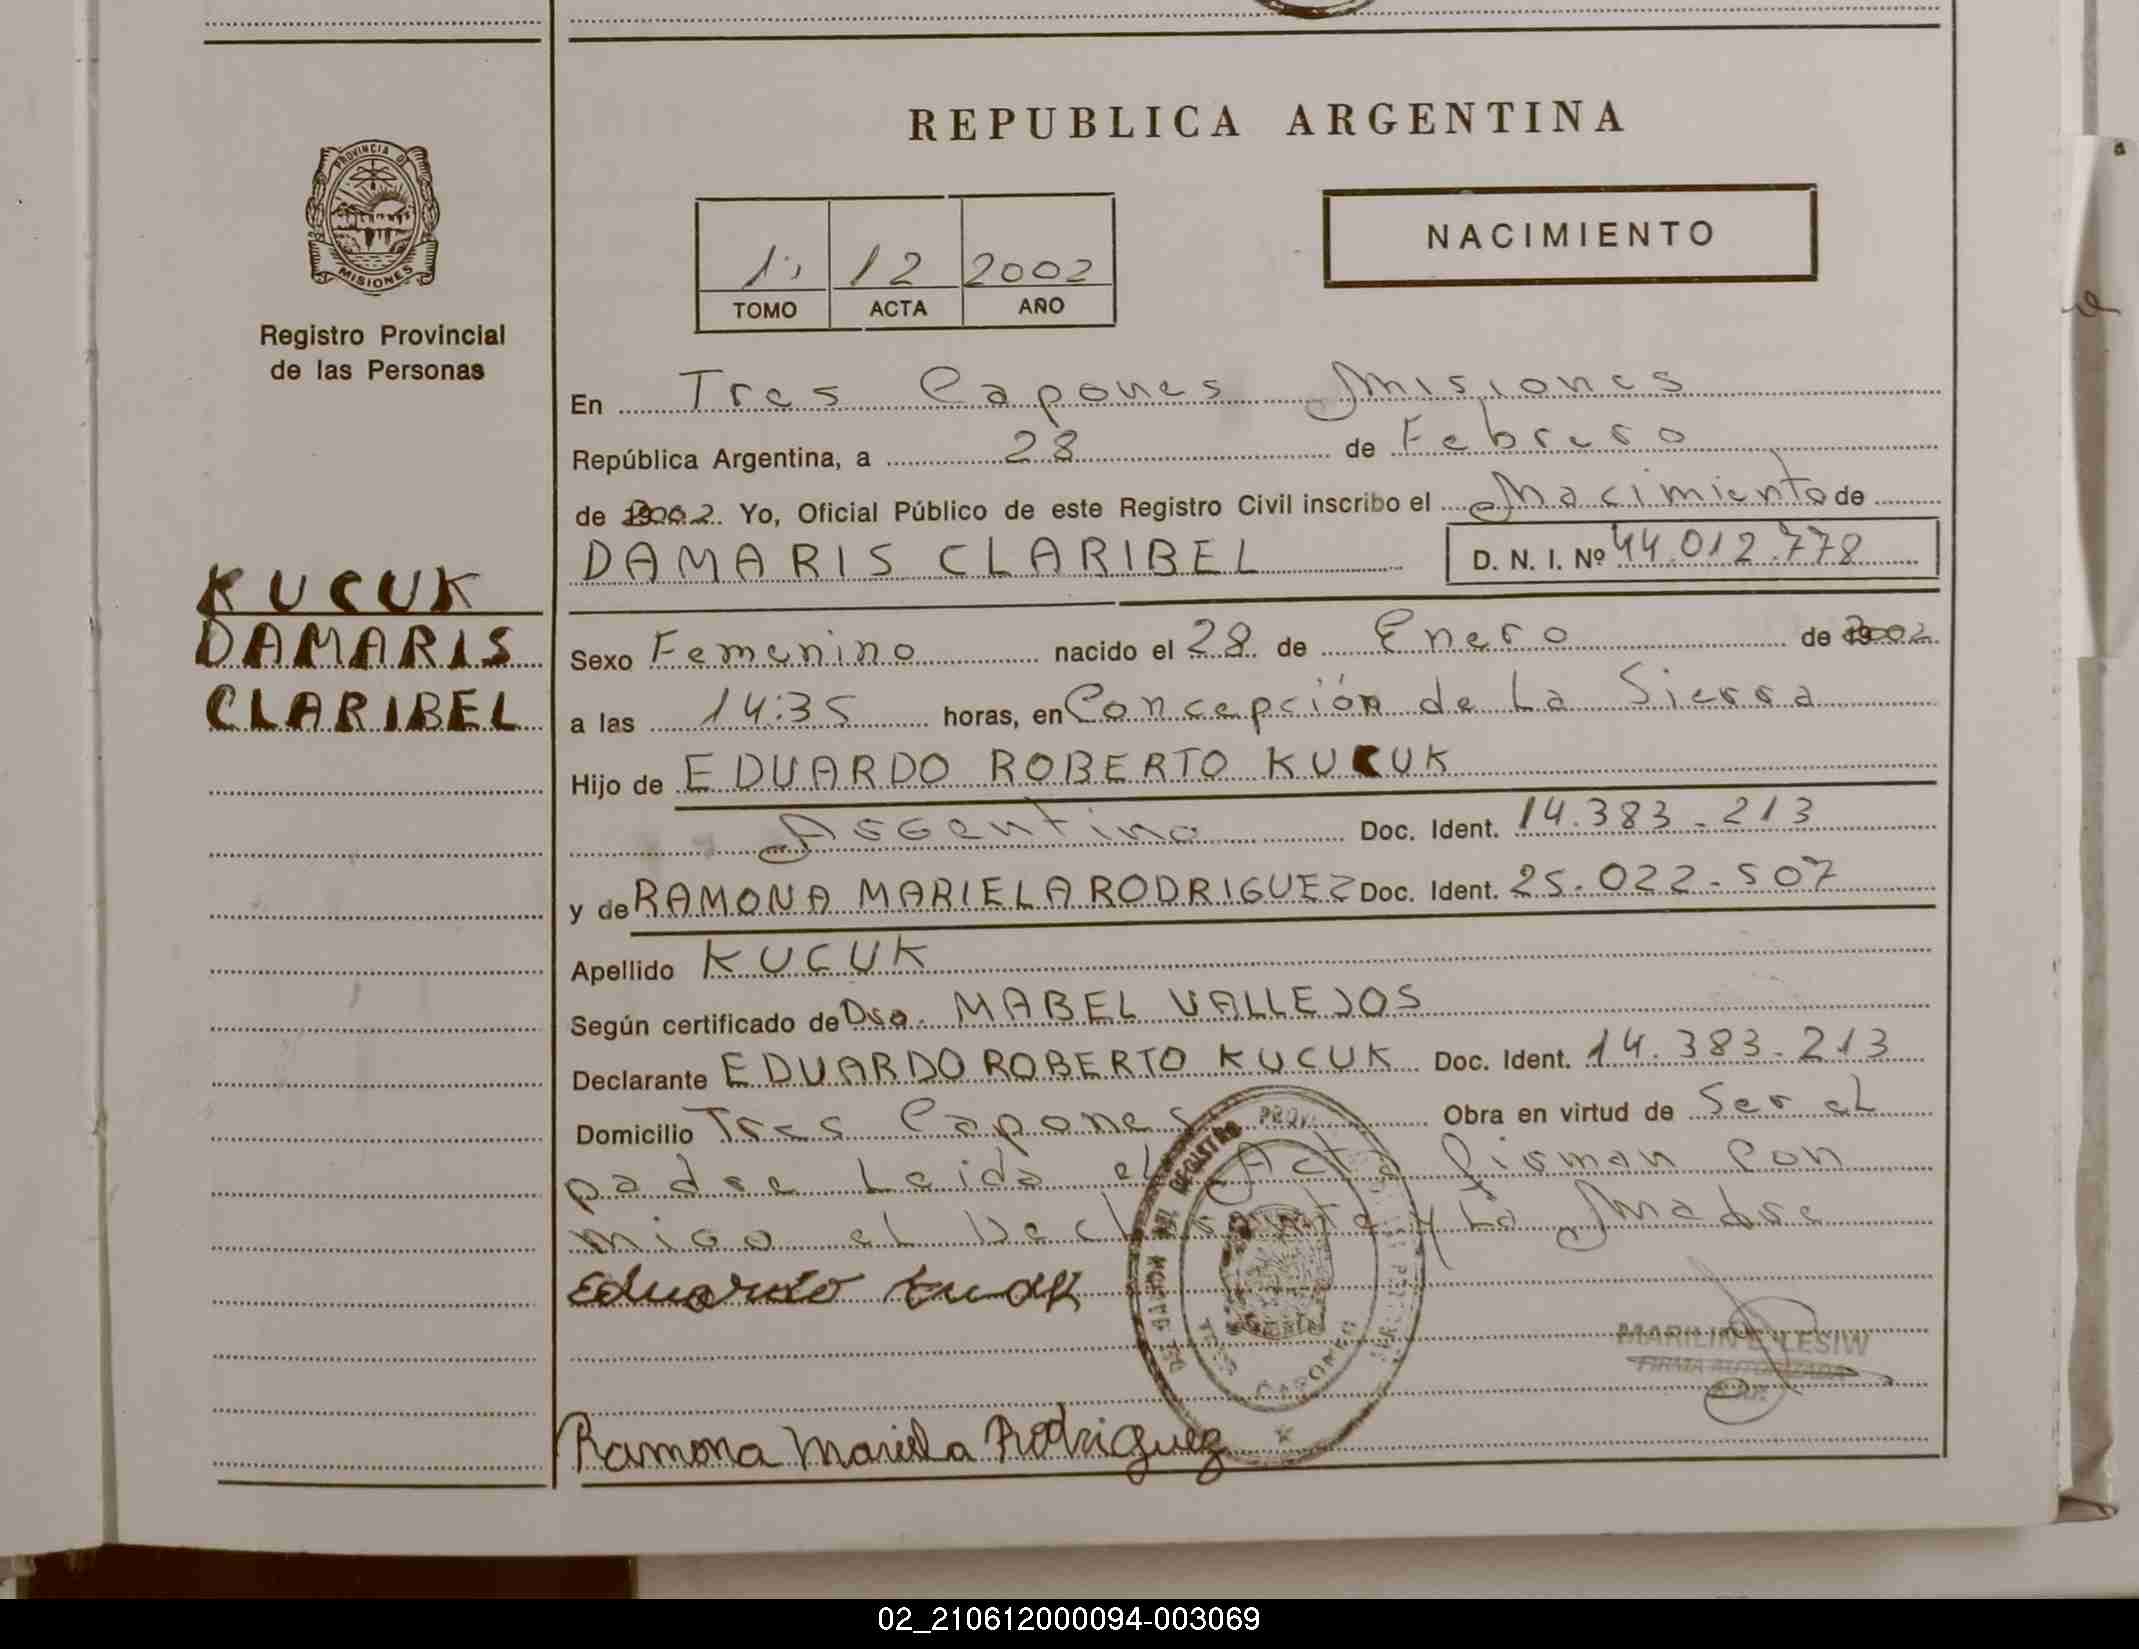 REPUBLICA ARGENTINA
PROVINCIA DE
MISIONES
Registro Provincial
de las Personas
1º 12 2002
TOMO ACTA AÑO
NACIMIENTO
En Tres Capones Misiones
República Argentina, a 28 de Febrero
de 2002. Yo, Oficial Público de este Registro Civil inscribo el Nacimiento de
DAMARIS CLARIBEL D. N. I. Nº 44.012.778
KUCUK
DAMARIS
CLARIBEL
Sexo Femenino nacido el 28 de Enero de 2002
a las 14:35 horas, en Concepción de La Sierra
Hijo de EDUARDO ROBERTO KUCUK
Argentino Doc. Ident. 14.383.213
y de RAMONA MARIELA RODRIGUEZ Doc. Ident. 25.022.507
Apellido KUCUK
Según certificado de Dra. MABEL VALLEJOS
Declarante EDUARDO ROBERTO KUCUK Doc. Ident. 14.383.213
Domicilio Tres Capones Obra en virtud de Ser el
padre Leida el Acta firman Con
migo el Declarante y La Madre
Eduardo Kucuk
TRES CAPONES
MARILIN E. LESIW
FIRMA AUTORIZADA
Ramona Mariela Rodriguez
02_210612000094-003069